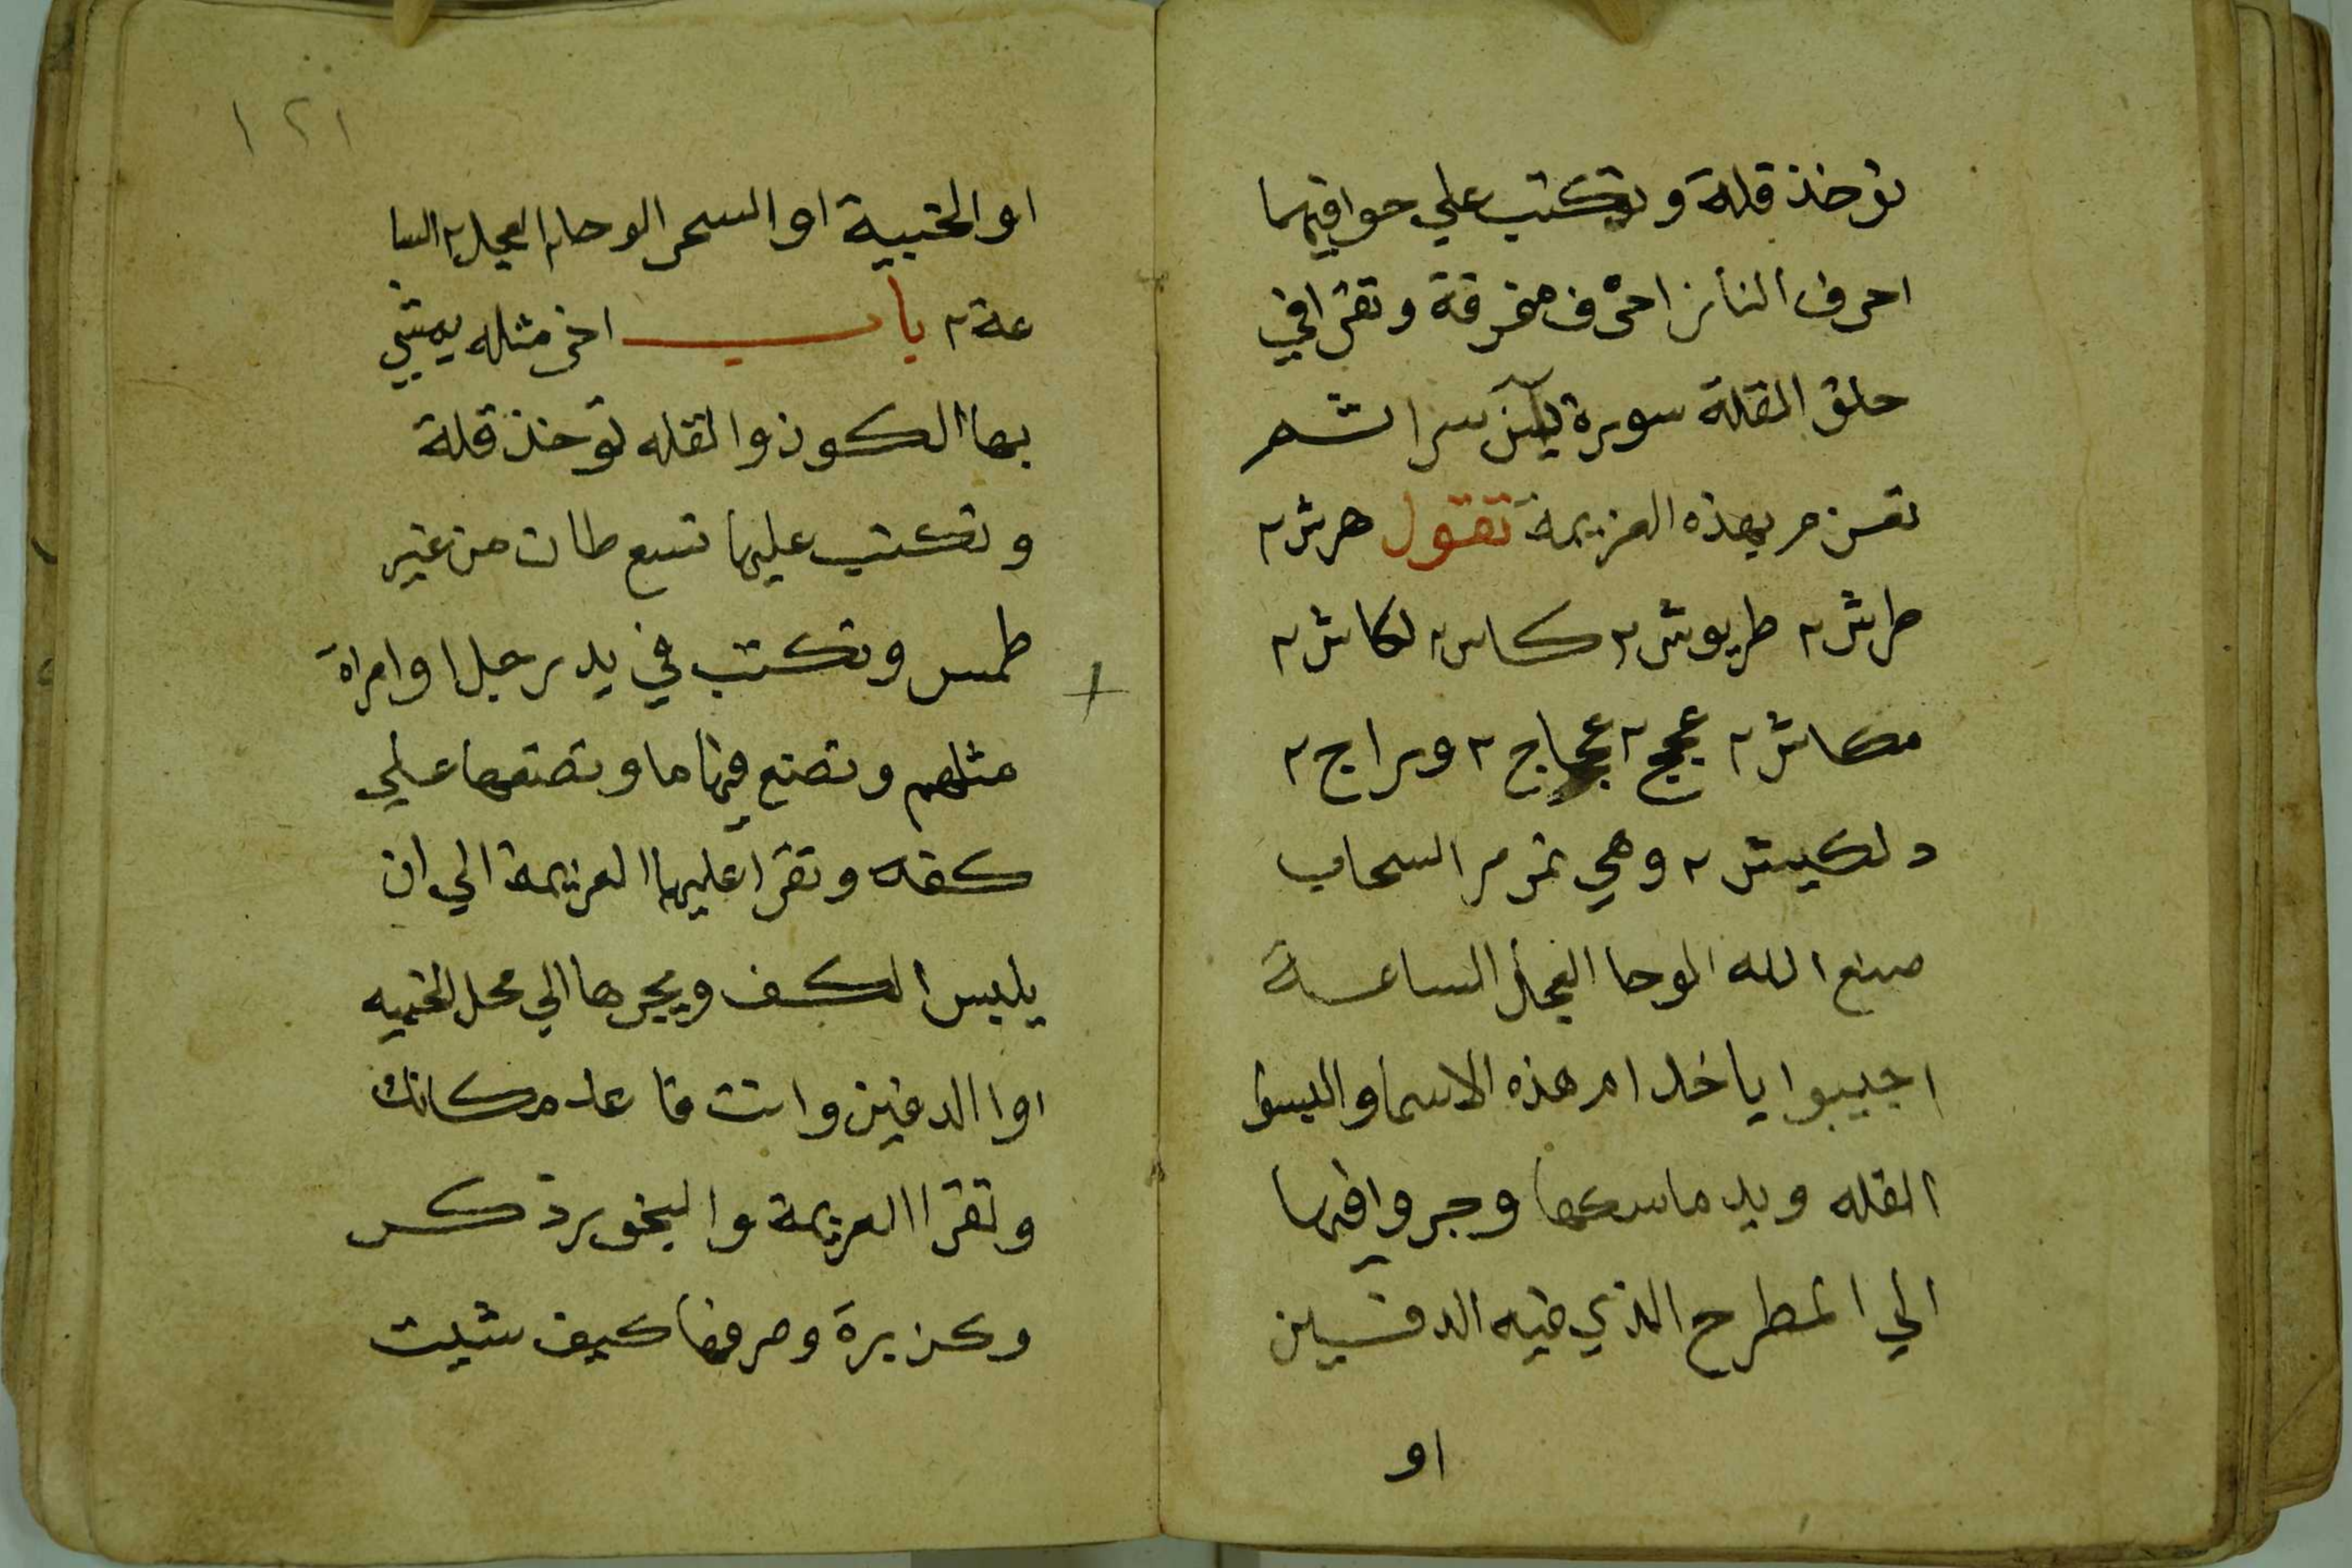 توخذ قلة وتكتب علي حوافيها
احرف النار احرف مفرقة وتقرا في
حلق القلة سورة يس سرا ثم
تعزم بهذه العزيمة تقول هرش ٢
طرش ٢ طريوش ٢ كاس ٢ لكاش ٢
مكاش ٢ عجج ٢ عجاج ٢ وراج ٢
دلكيش ٢ وهي تمر مر السحاب
صنع الله الوحا العجل الساعة
اجيبوا يا خدام هذه الاسما والبسوا
القله ويد ماسكها وجروا فيها
الي المطرح الذي فيه الدفين
او
١٢١
او الخبية او السحر الوحا ٢ العجل ٢ السا
عة ٢ باب اخر مثله يمشي
بها الكوز والقله توخذ قلة
وتكتب عليها تسع طات من غير
طمس وتكتب في يد رجل او امراة
مثلهم وتضع فيها ما وتضعها علي
كفه وتقرا عليها العزيمة الي ان
يلبس الكف ويجرها الي محل الخبيه
اوا الدفين وانت قاعد مكانك
وتقرا العزيمة والبخور ذكر
وكزبرة وصرفها كيف شيت